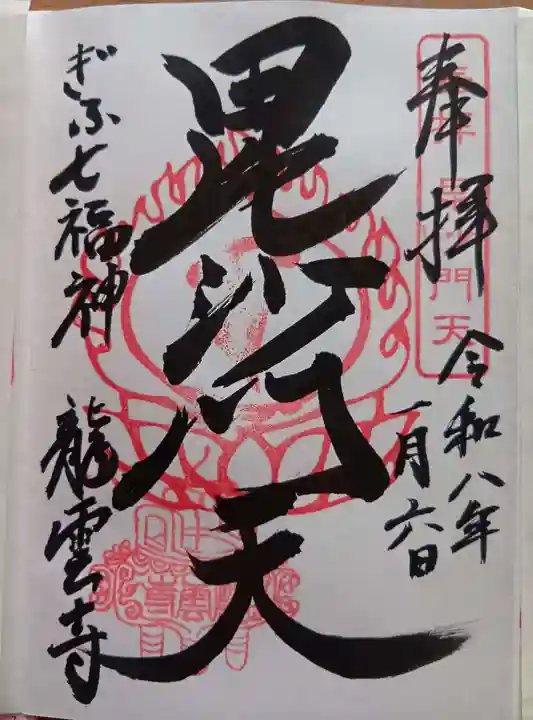 奉拝
令和八年
一月六日
毘沙門天
ぎふ七福神
龍雲寺